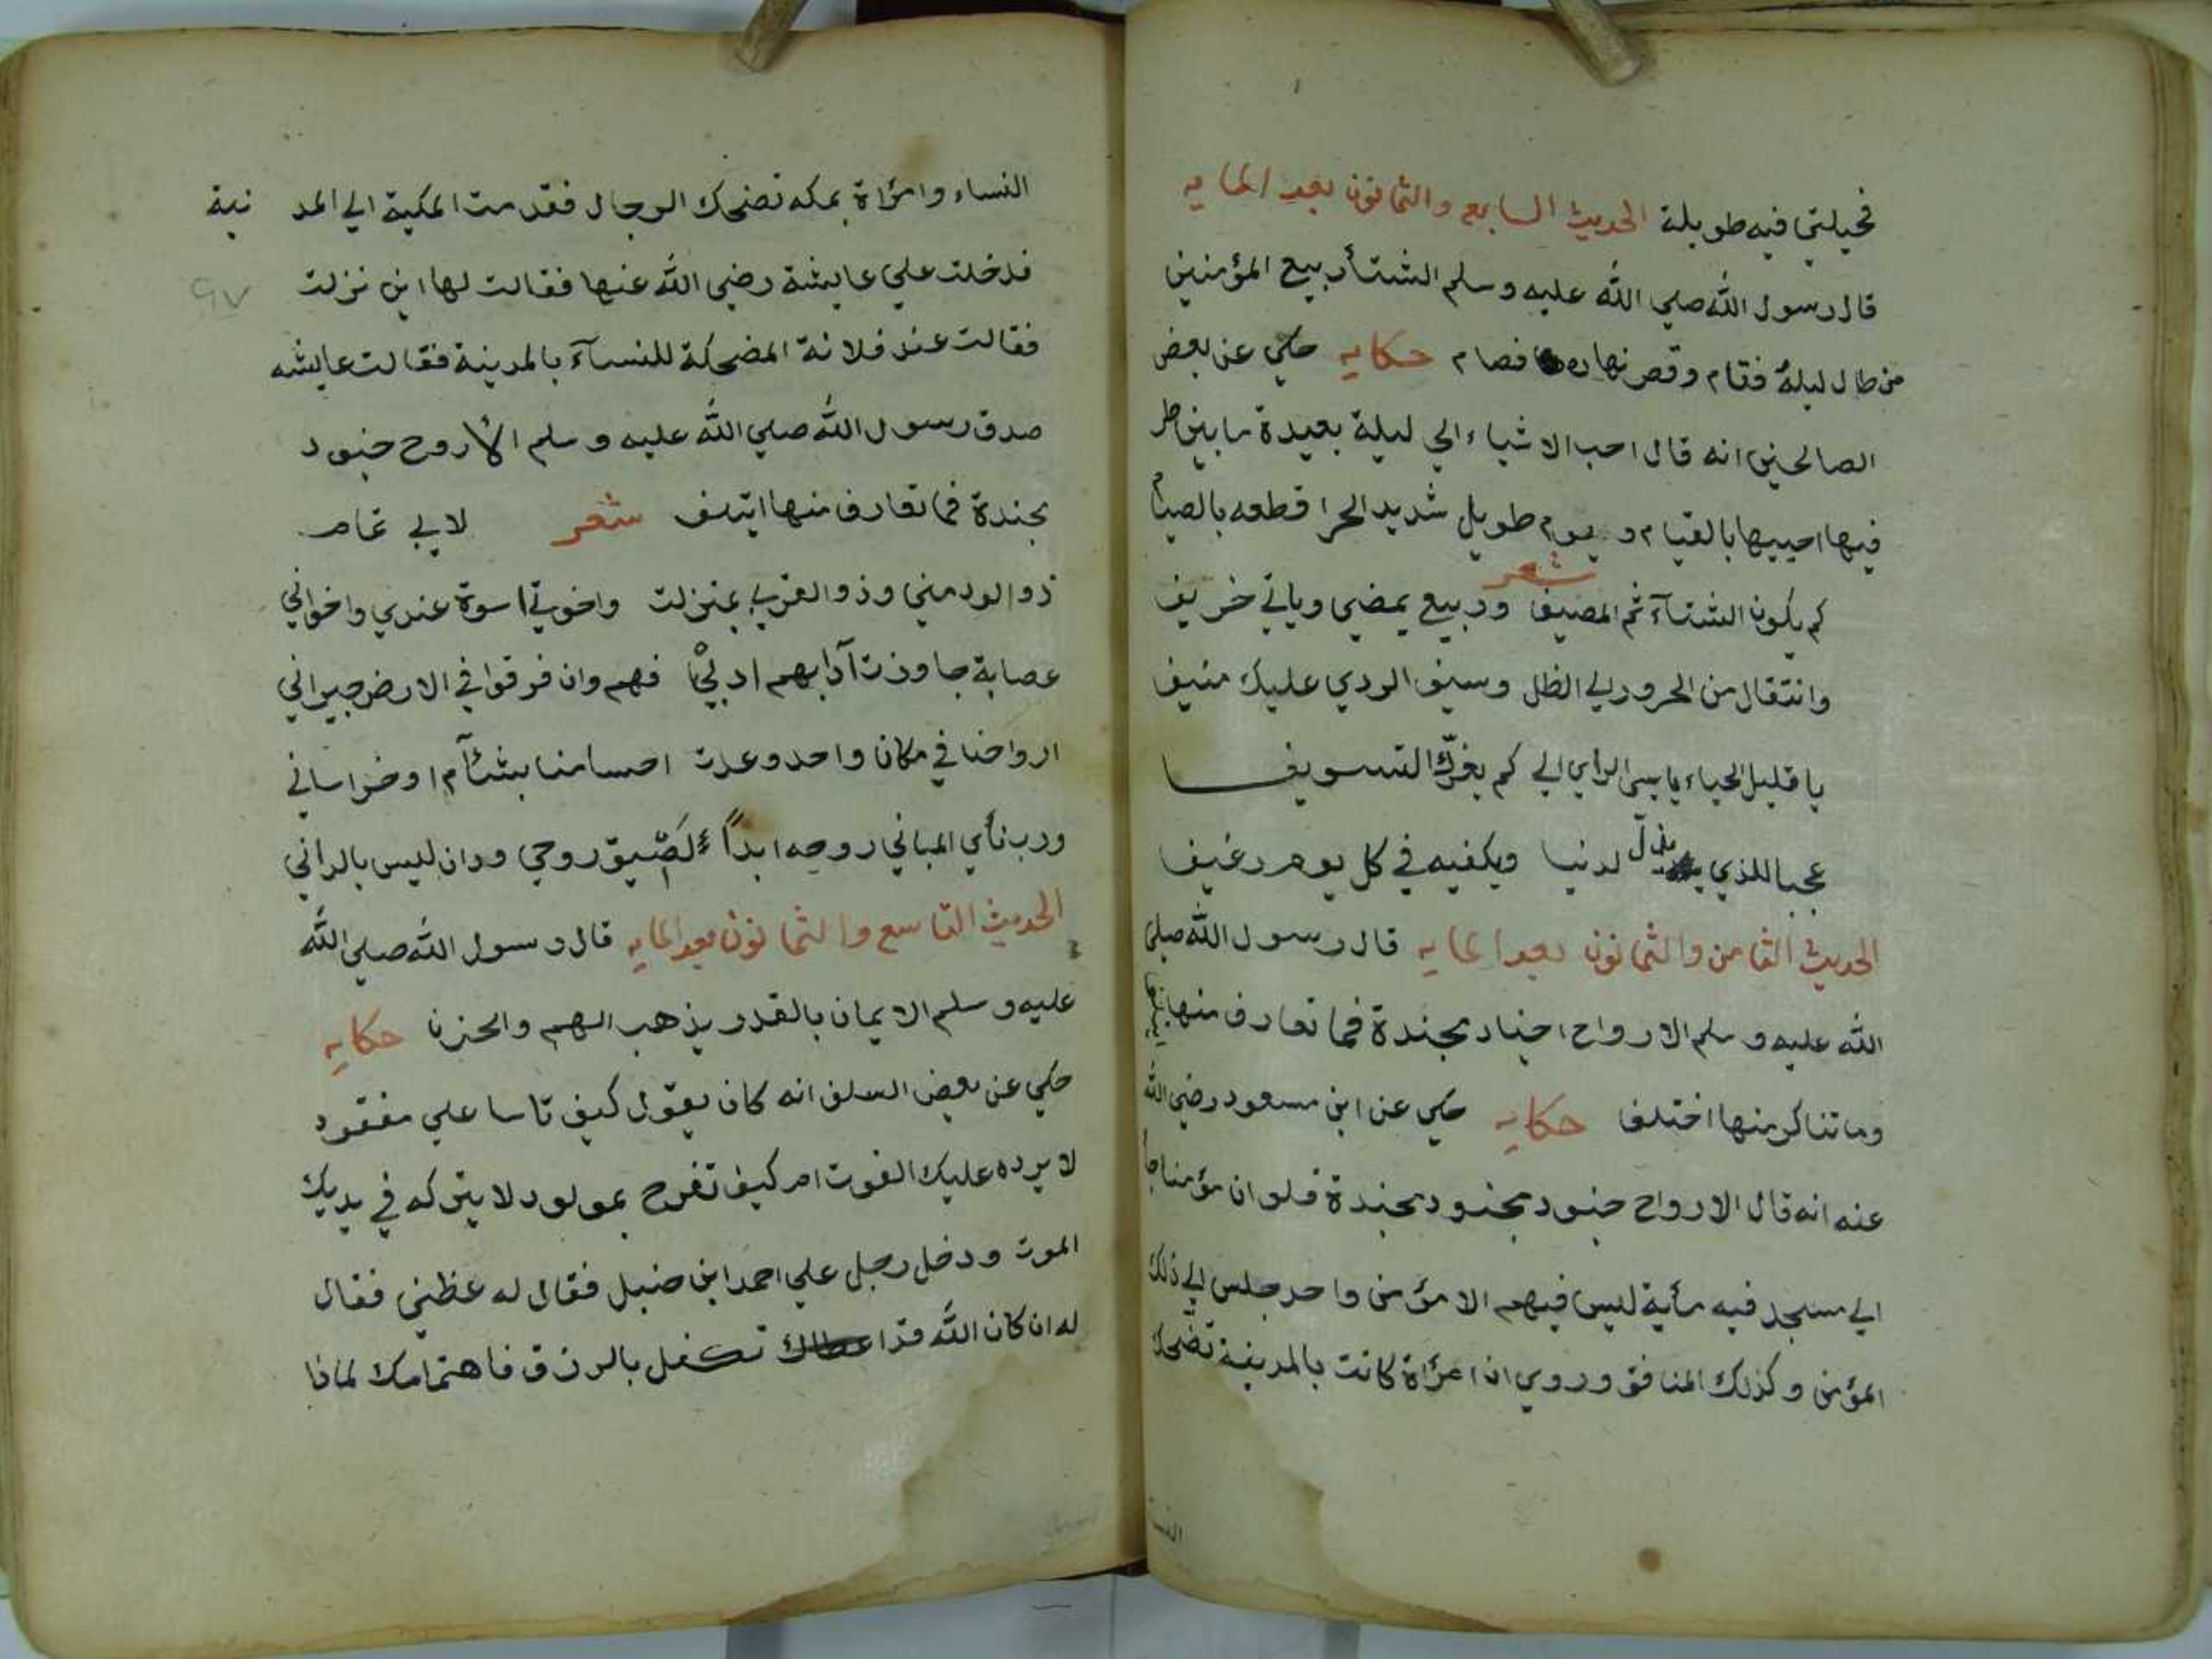 فحيلتي فيه طويلة الحديث السابع والثمانون بعد المايه
قال رسول الله صلي الله عليه وسلم الشتأ ربيع المؤمنين
من طال ليلهُ فقام وقصر نهاره فصام حكايه حكي عن بعض
الصالحين انه قال احب الاشياء الي ليلة بعيدة ما بين طر
فيها احييها بالقيام و يوم طويل شديد الحر اقطعه بالصيام
شعر
كم يكون الشتآء ثم المصيف وربيع يمضي وياتي خريف
وانتقال من الحرور الي الظل وسيف الردي عليك منيف
يا قليل الحياء يا سي الراي الي كم يغرّك التسويف
عجبا للذي يذلّ لدنيا ويكفيه في كل يوم رغيف
الحديث الثامن والثمانون بعد المايه قال رسول الله صلي
الله عليه وسلم الارواح اجناد مجندة فما تعارف منها
وما تناكر منها اختلف حكايه حكي عن ابن مسعود رضي الله
عنه انه قال الارواح جنود مجنود مجندة فلو ان مؤمنا جا
الي مسجد فيه مأية ليس فيهم الا مؤمن واحد جلس الي ذلك
المؤمن وكذلك المنافق وروي ان امرٔاة كانت بالمدينة تضحك
النسا
النساء وامرٔاة بمكه تضحك الرجال فقدمت المكية الي المد نية
فدخلت علي عايشة رضي الله عنها فقالت لها اين نزلت
٩٧
فقالت عند فلانة المضحكة للنسآء بالمدينة فقالت عايشه
صدق رسول الله صلي الله عليه وسلم الأروح جنود
مجندة فما تعارف منها ايتلف شعر لابي تمام
ذو الود مني وذو القربي بمنزلت واخوتي اسوة عندي واخواني
عصابة جاوزت آدابهم ادبي فهم وان فرقوا في الارض جيراني
ارواحنا في مكان واحد وعدت اجسامنا بشئآم او خراساني
ورب نأي المباني روحه ابداً لصيق روحي ودان ليس بالداني
الحديث التاسع والثمانون بعد المايه قال رسول الله صلي الله
عليه وسلم الايمان بالقدر يذهب الهم والحزن حكايه
حكي عن بعض السلف انه كان يقول كيف تاسا علي مفقود
لا يرده عليك الفوت ام كيف تفرح بمولود لا يتركه في يديك
الموت ودخل رجل علي احمد ابن حنبل فقال له عظني فقال
له ان كان الله قد تكفل بالرزق فاهتمامك لماذا